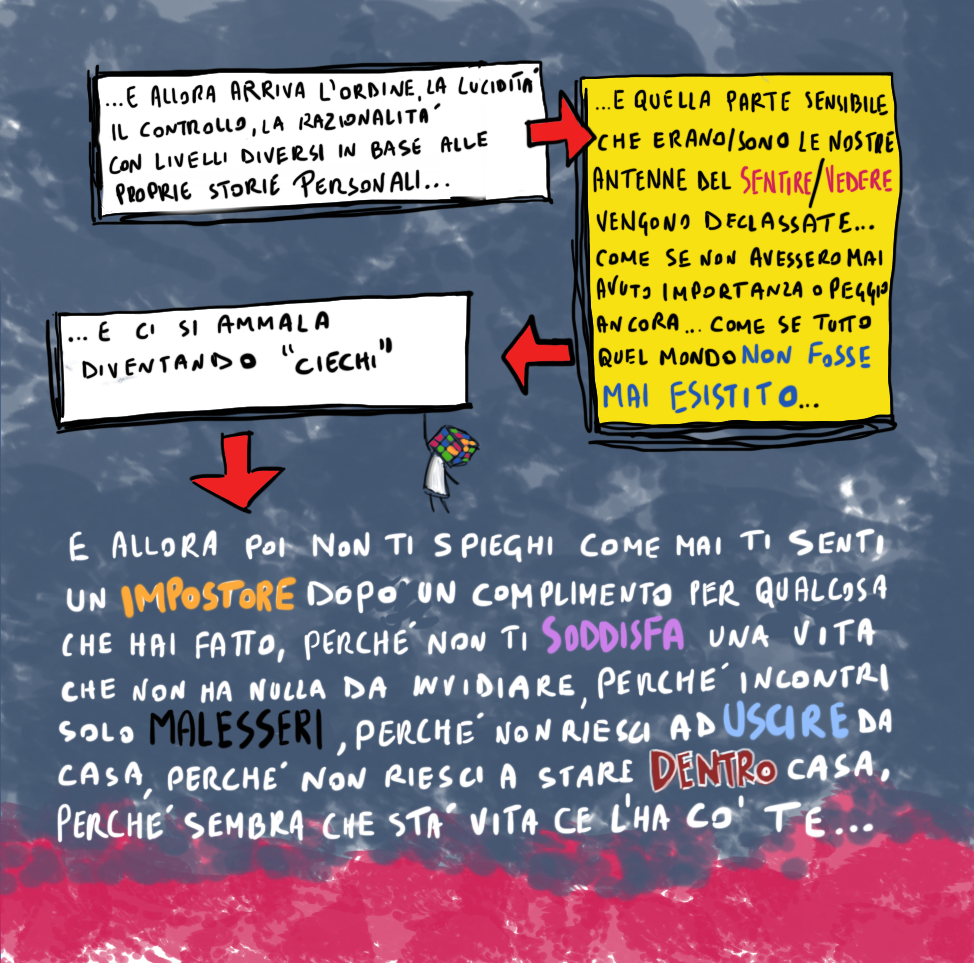 ...E ALLORA ARRIVA L'ORDINE, LA LUCIDITÁ
IL CONTROLLO, LA RAZIONALITÁ
CON LIVELLI DIVERSI IN BASE ALLE
PROPRIE STORIE PERSONALI...
...E QUELLA PARTE SENSIBILE
CHE ERANO/SONO LE NOSTRE
ANTENNE DEL SENTIRE/VEDERE
VENGONO DECLASSATE...
COME SE NON AVESSERO MAI
AVUTO IMPORTANZA O PEGGIO
ANCORA... COME SE TUTTO
QUEL MONDO NON FOSSE
MAI ESISTITO...
...E CI SI AMMALA
DIVENTANDO "CIECHI"
E ALLORA POI NON TI SPIEGHI COME MAI TI SENTI
UN IMPOSTORE DOPO UN COMPLIMENTO PER QUALCOSA
CHE HAI FATTO, PERCHÉ NON TI SODDISFA UNA VITA
CHE NON HA NULLA DA INVIDIARE, PERCHÉ INCONTRI
SOLO MALESSERI, PERCHÉ NON RIESCI AD USCIRE DA
CASA, PERCHÉ NON RIESCI A STARE DENTRO CASA,
PERCHÉ SEMBRA CHE STÁ VITA CE L'HA CO' TE...